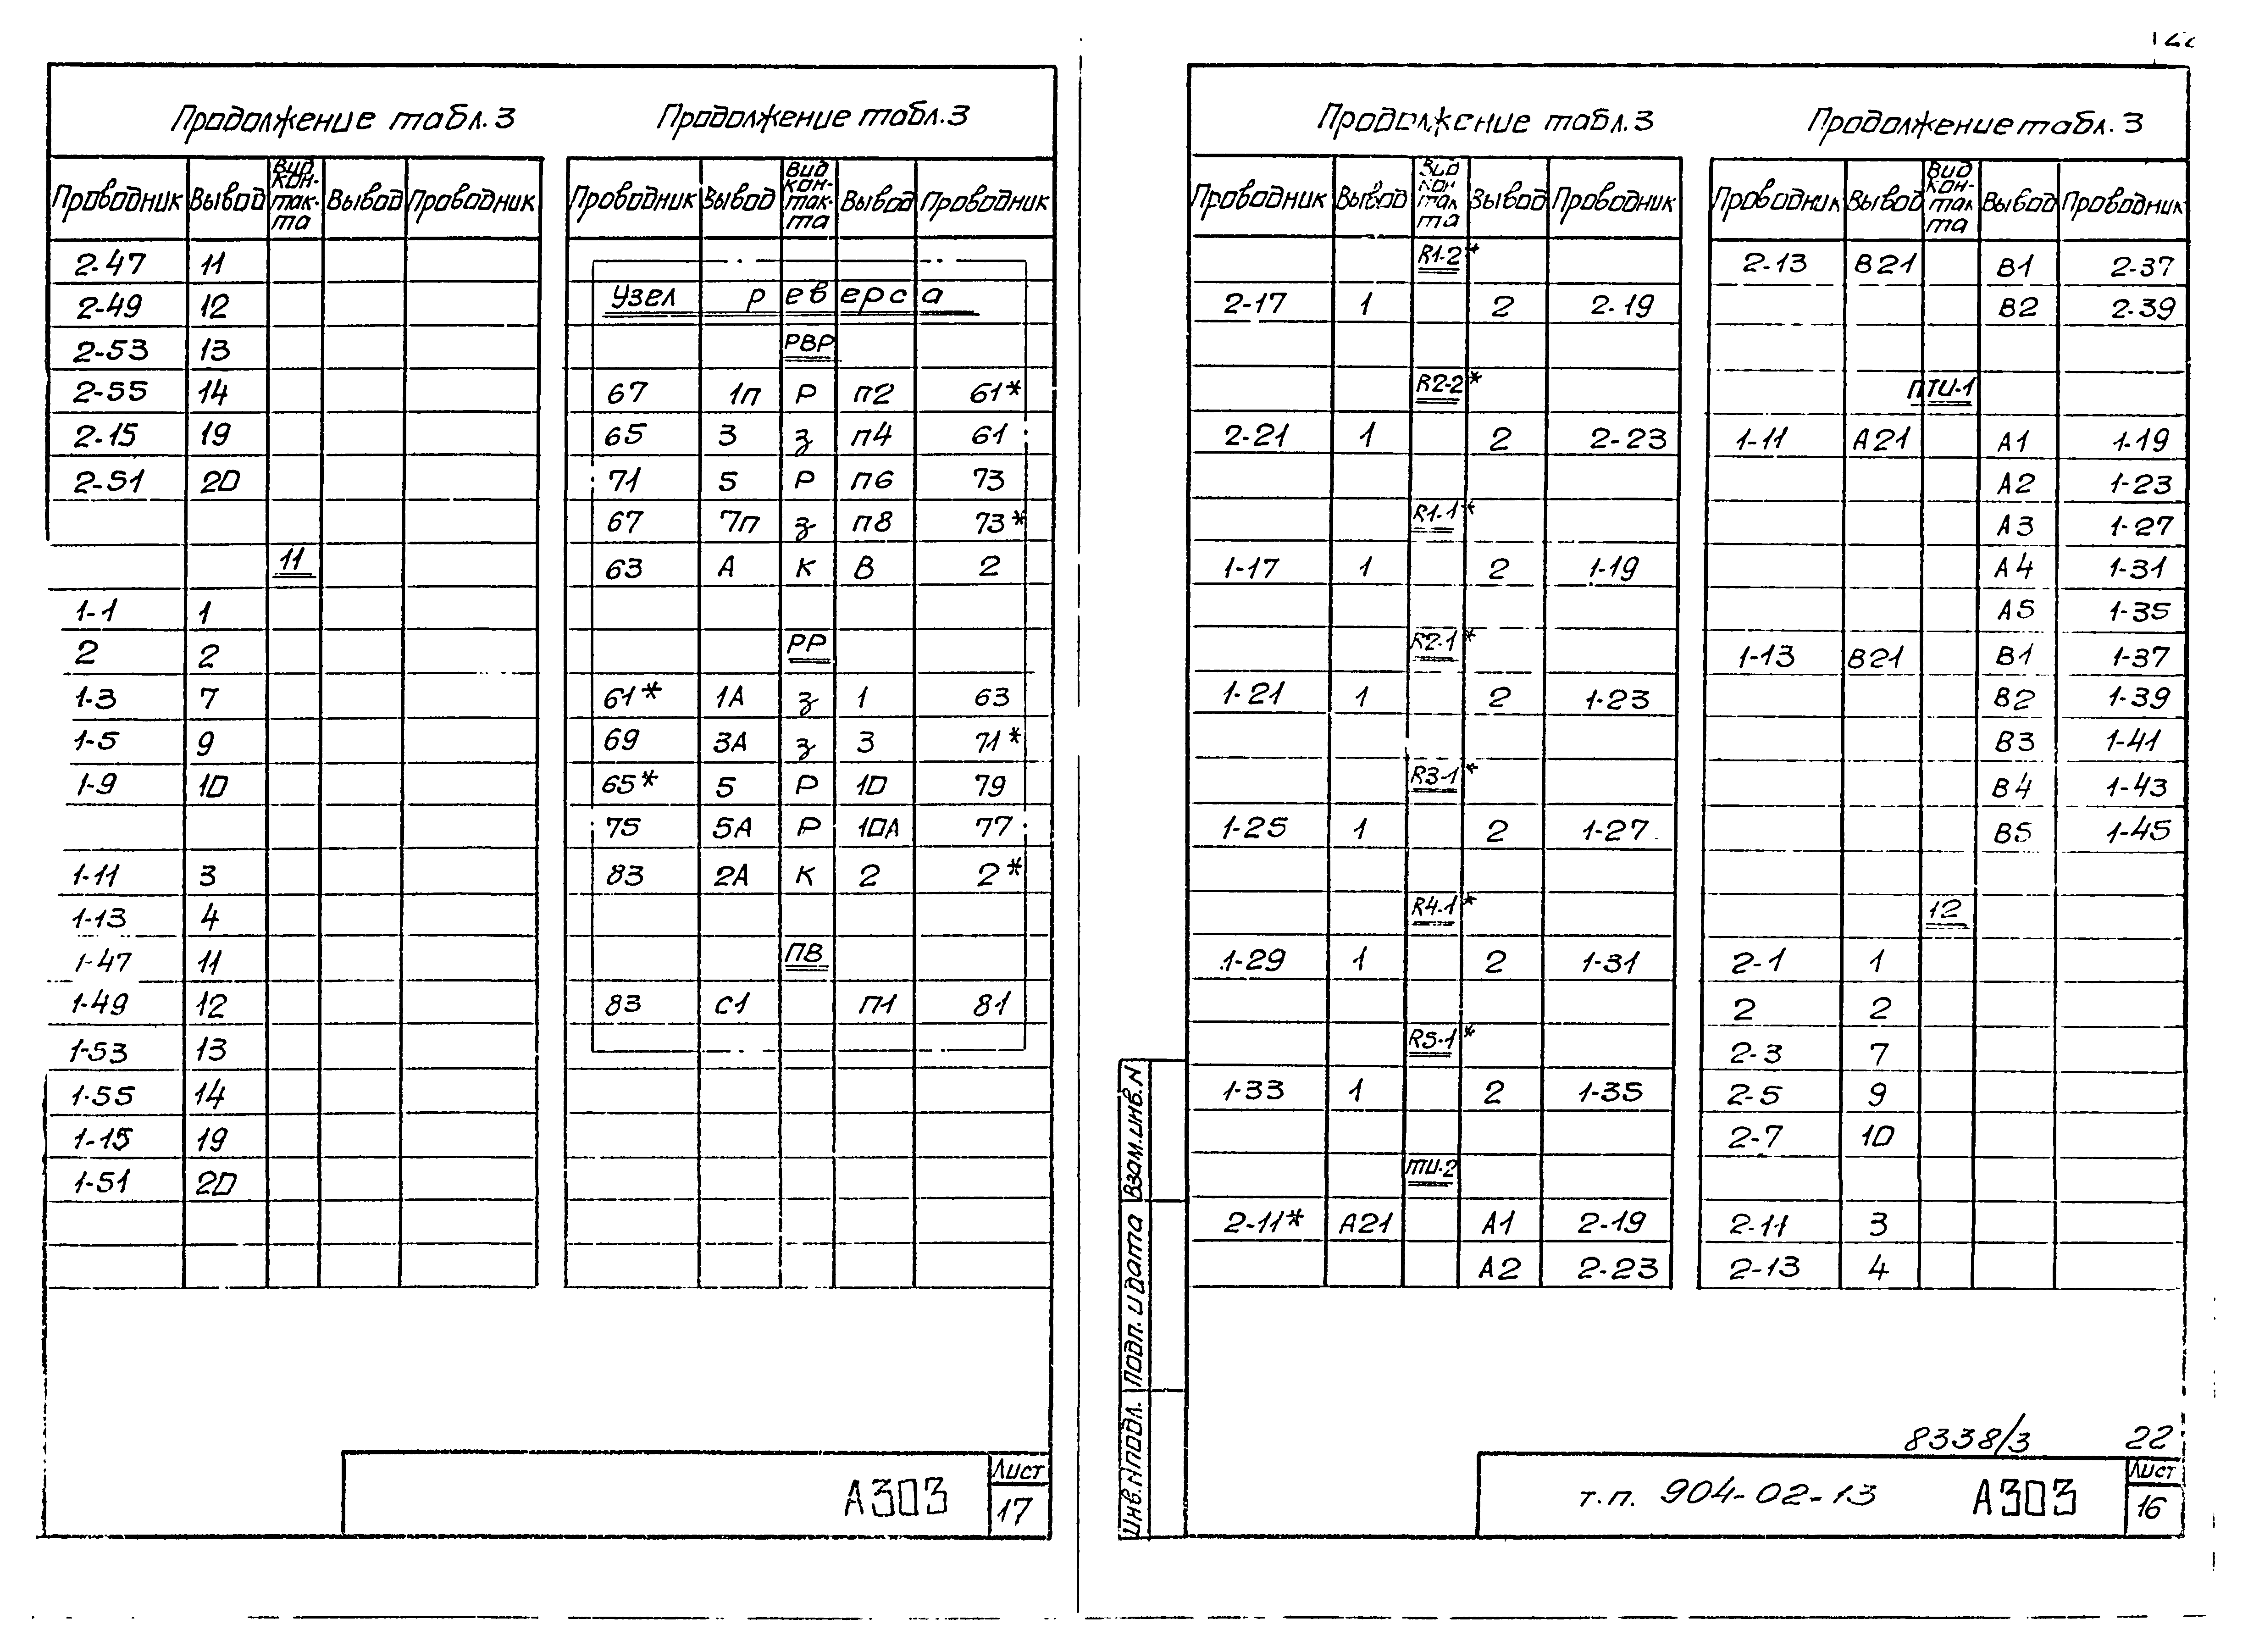 Продолжение табл. 3
Проводник Вывод Вид кон-так-та Вывод Проводник
2-47 11
2-49 12
2-53 13
2-55 14
2-15 19
2-51 20
11
1-1 1
2 2
1-3 7
1-5 9
1-9 10
1-11 3
1-13 4
1-47 11
1-49 12
1-53 13
1-55 14
1-15 19
1-51 20
Продолжение табл. 3
Проводник Вывод Вид кон-так-та Вывод Проводник
Узел реверса
РВР
67 1п Р п2 61*
65 3 з п4 61
71 5 Р п6 73
67 7п з п8 73*
63 А К В 2
РР
61* 1А з 1 63
69 3А з 3 71*
65* 5 Р 10 79
75 5А Р 10А 77
83 2А К 2 2*
ПВ
83 С1 П1 81
А303
Лист
17
Продолжение табл. 3
Проводник Вывод Вид кон так та Вывод Проводник
R1-2*
2-17 1 2 2-19
R2-2*
2-21 1 2 2-23
R1-1*
1-17 1 2 1-19
R2-1*
1-21 1 2 1-23
R3-1*
1-25 1 2 1-27
R4-1*
1-29 1 2 1-31
R5-1*
1-33 1 2 1-35
ПТИ-2
2-11* А21 А1 2-19
А2 2-23
Продолжение табл. 3
Проводник Вывод Вид кон-так та Вывод Проводник
2-13 В21 В1 2-37
В2 2-39
ПТИ-1
1-11 А21 А1 1-19
А2 1-23
А3 1-27
А4 1-31
А5 1-35
1-13 В21 В1 1-37
В2 1-39
В3 1-41
В4 1-43
В5 1-45
12
2-1 1
2 2
2-3 7
2-5 9
2-7 10
2-11 3
2-13 4
Взам.инв.N
Подп. и дата
Инв.Nподл.
8338/3 22
т.п. 904-02-13 А303
Лист
16